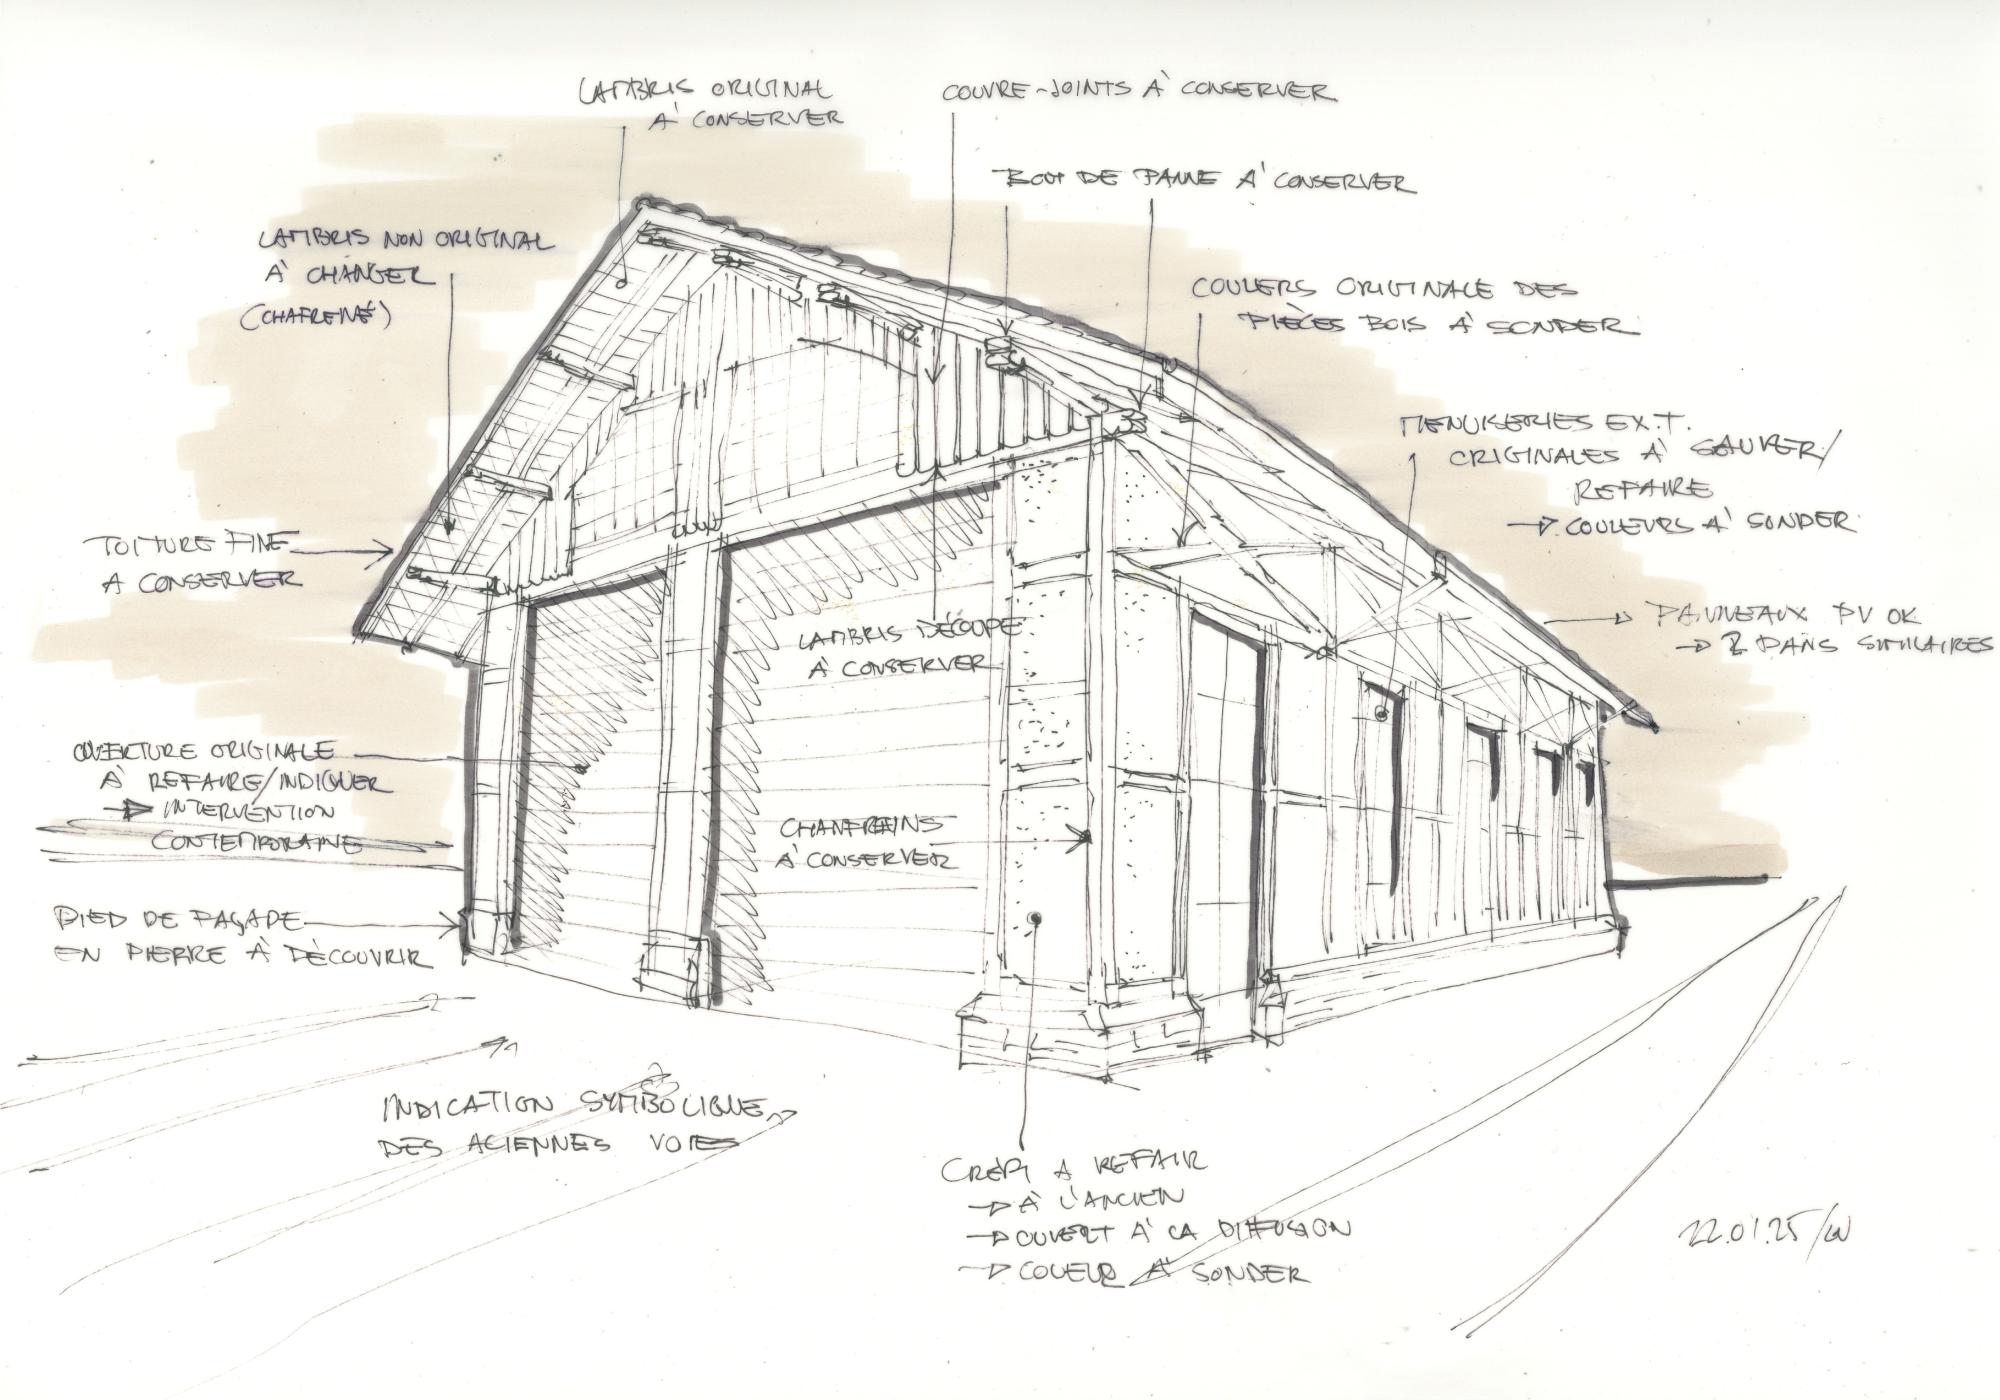 LAMBRIS ORIGINAL
À CONSERVER
COUVRE-JOINTS À CONSERVER
BOUT DE PANNE À CONSERVER
LAMBRIS NON ORIGINAL
À CHANGER
(CHAFREINÉ)
COULERS ORIGINALE DES
PIÈCES BOIS À SONDER
MENUISERIES EXT.
ORIGINALES À SAUVER/
REFAIRE
→ COULEURS À SONDER
TOITURE FINE
A CONSERVER
PANNEAUX PV OK
→ 2 PANS SIMILAIRES
LAMBRIS DÉCOUPE
À CONSERVER
OUVERTURE ORIGINALE
À REFAIRE/INDIQUER
→ INTERVENTION
CONTEMPORAINE
CHANFREINS
À CONSERVER
PIED DE FAÇADE
EN PIERRE À DÉCOUVRIR
INDICATION SYMBOLIQUE
DES ACIENNES VOIES
CRÉPI A REFAIR
→ À L'ANCIEN
→ OUVERT À LA DIFFUSION
→ COUEUR À SONDER
22.01.25/